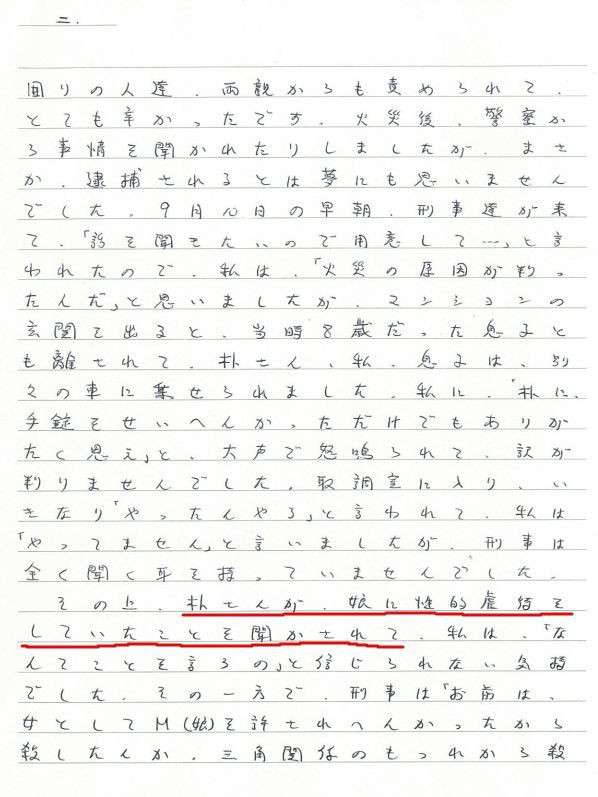 二.
回りの人達、両親からも責められて、
とても辛かったです。火災後、警察か
ら事情を聞かれたりしましたが、まさ
か、逮捕されるとは夢にも思いません
でした。9月10日の早朝、刑事達が来
て、「話を聞きたいので用意して…」と言
われたので、私は、「火災の原因が判っ
たんだ」と思いましたが、マンションの
玄関て出ると、当時8歳だった息子と
も離されて、朴さん、私、息子は、別
々の車に乗せられました。私に、「朴に、
手錠をせいへんかっただけでもありが
たく思え」と、大声で怒鳴られて、訳が
判りませんでした。取調室に入り、い
きなり「やったんやろ」と言われて、私は
「やってません」と言いましたが、刑事は
全く聞く耳を持っていませんでした。
その上、朴さんが、娘に性的虐待を
していたことを聞かされて、私は、「な
んてことを言うの」と信じられない気持
でした。その一方で、刑事は「お前は、
女としてM(娘)を許されへんかったから
殺したんか、三角関係のもつれから殺